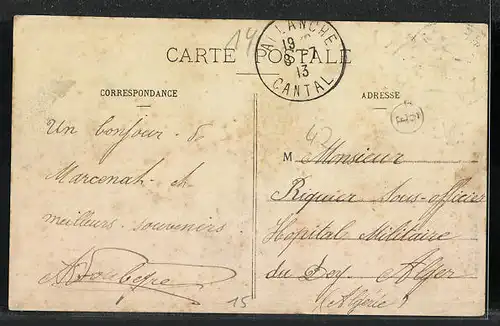 14
CARTE POSTALE
ALLANCHE
19
8-7
13
CANTAL
CORRESPONDANCE
Un bonjour de
Marcenat et
meilleurs souvenirs
ADRESSE
47
M Monsieur
Riquier Sous-officier
Hopital Militaire
du Dey Alger
(Algérie)
15